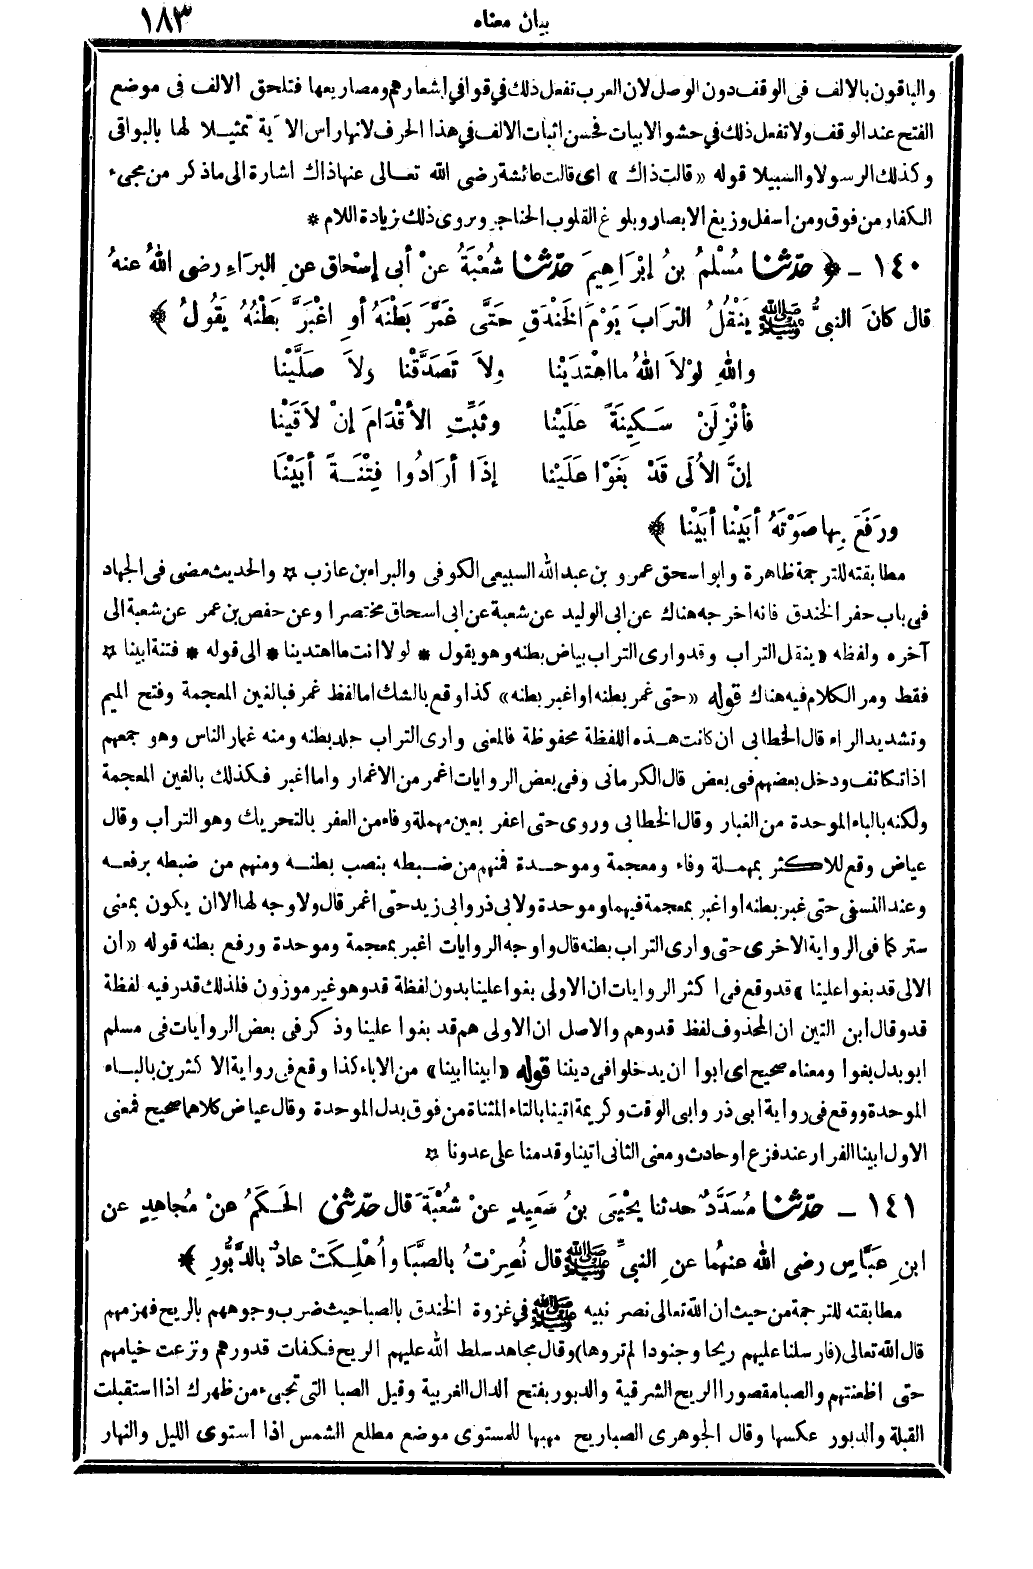 بيان معناه ١٨٣
والباقون بالالف فى الوقف دون الوصل لان العرب تفعل ذلك في قوافي اشعارهم ومصاريعها فتلحق الالف فى موضع
الفتح عند الوقف ولا تفعل ذلك في حشو الابيات فحسن اثبات الالف في هذا الحرف لانها رأس الآية تمثيلا لها بالبواقى
وكذلك الرسولا والسبيلا قوله «قالت ذاك» اى قالت عائشة رضى الله تعالى عنها ذاك اشارة الى ماذكر من مجىء
الكفار من فوق ومن اسفل وزيغ الابصار وبلوغ القلوب الحناجر ويروى ذلك بزيادة اللام *
١٤٠ ـ ﴿ حَدَّثنا مُسْلِمُ بنُ إبْرَاهِيمَ حَدَّثنا شُعْبَةُ عنْ أبى إسْحاقَ عنِ البرَاءِ رضى اللهُ عنهُ
قال كانَ النبىُّ ﷺ يَنْقُلُ التراب يَوْمَ الخَنْدَقِ حَتَّى غَمَّرَ بَطْنَهُ أوِ اغْبَرَّ بَطْنُهُ يَقُولُ ﴾
واللهِ لوْلاَ اللهُ مااهْتَدَيْنا ولاَ تَصَدَّقْنا ولاَ صَلَّيْنا
فأنْزِلَنْ سَكِينَةً عَلَيْنا وثَبِّتِ الأقْدَامَ إنْ لاَقَيْنا
إنَّ الأُلَى قَدْ بَغَوْا عَلَيْنا إذَا أرَادُوا فِتْنَةً أبَيْنَا
ورَفَعَ بِها صَوْتَهُ أبَيْنا أبَيْنا ﴾
مطابقته للترجمة ظاهرة وابو اسحق عمرو بن عبد الله السبيعى الكوفى والبراء بن عازب * والحديث مضى فى الجهاد
فى باب حفر الخندق فانه اخرجه هناك عن ابى الوليد عن شعبة عن ابى اسحاق مختصرا وعن حفص بن عمر عن شعبة الى
آخره ولفظه «ينقل التراب وقد وارى التراب بياض بطنه وهو يقول * لولا انت ما اهتدينا * الى قوله * فتنة ابينا *
فقط ومر الكلام فيه هناك قوله «حتى غمر بطنه او اغبر بطنه» كذا وقع بالشك اما لفظ غمر فبالغين المعجمة وفتح الميم
وتشديد الراء قال الخطابى ان كانت هذه اللفظة محفوظة فالمعنى وارى التراب جلد بطنه ومنه غمار الناس وهو جمعهم
اذا تكاثف ودخل بعضهم فى بعض قال الكرمانى وفى بعض الروايات اغمر من الاغمار واما اغبر فكذلك بالغين المعجمة
ولكنه بالباء الموحدة من الغبار وقال الخطابى وروى حتى اعفر بعين مهملة وفاء من العفر بالتحريك وهو التراب وقال
عياض وقع للاكثر بمهملة وفاء ومعجمة وموحدة فمنهم من ضبطه بنصب بطنه ومنهم من ضبطه برفعه
وعند النسفى حتى غبر بطنه او اغبر بمعجمة فيهما وموحدة ولابى ذر وابى زيد حتى اغمر قال ولا وجه لها الا ان يكون بمعنى
ستر كما فى الرواية الاخرى حتى وارى التراب بطنه قال واوجه الروايات اغبر بمعجمة وموحدة ورفع بطنه قوله «ان
الالى قد بغوا علينا» قد وقع فى اكثر الروايات ان الاولى بغوا علينا بدون لفظة قد وهو غير موزون فلذلك قدر فيه لفظة
قد وقال ابن التين ان المحذوف لفظ قد وهم والاصل ان الاولى هم قد بغوا علينا وذكر فى بعض الروايات فى مسلم
ابو بدل بغوا ومعناه صحيح اى ابوا ان يدخلوا فى ديننا قوله «ابينا ابينا» من الاباء كذا وقع فى رواية الاكثرين بالباء
الموحدة ووقع فى رواية ابى ذر وابى الوقت وكريمة اتينا بالتاء المثناة من فوق بدل الموحدة وقال عياض كلاهما صحيح فمعنى
الاول ابينا الفرار عند فزع او حادث ومعنى الثانى اتينا وقدمنا على عدونا *
١٤١ ـ حَدَّثنا مُسَدَّدٌ حدثنا يحْيَى بنُ سَعِيدٍ عنْ شُعْبَةَ قال حَدَّثنى الحَكَمُ عنْ مُجاهِدٍ عن
ابنِ عَبَّاسٍ رضى الله عنهُما عنِ النبىِّ ﷺ قال نُصِرْتُ بالصَّبَا وأُهْلِكَتْ عادٌ بالدَّبُورِ ﴾
مطابقته للترجمة من حيث ان الله تعالى نصر نبيه ﷺ في غزوة الخندق بالصبا حيث ضرب وجوههم بالريح فهزمهم
قال الله تعالى (فارسلنا عليهم ريحا وجنودا لم تروها) وقال مجاهد سلط الله عليهم الريح فكفات قدورهم ونزعت خيامهم
حتى اظعنتهم والصبا مقصورا الريح الشرقية والدبور بفتح الدال الغربية وقيل الصبا التى تجىء من ظهرك اذا استقبلت
القبلة والدبور عكسها وقال الجوهرى الصبا ريح مهبها المستوى موضع مطلع الشمس اذا استوى الليل والنهار